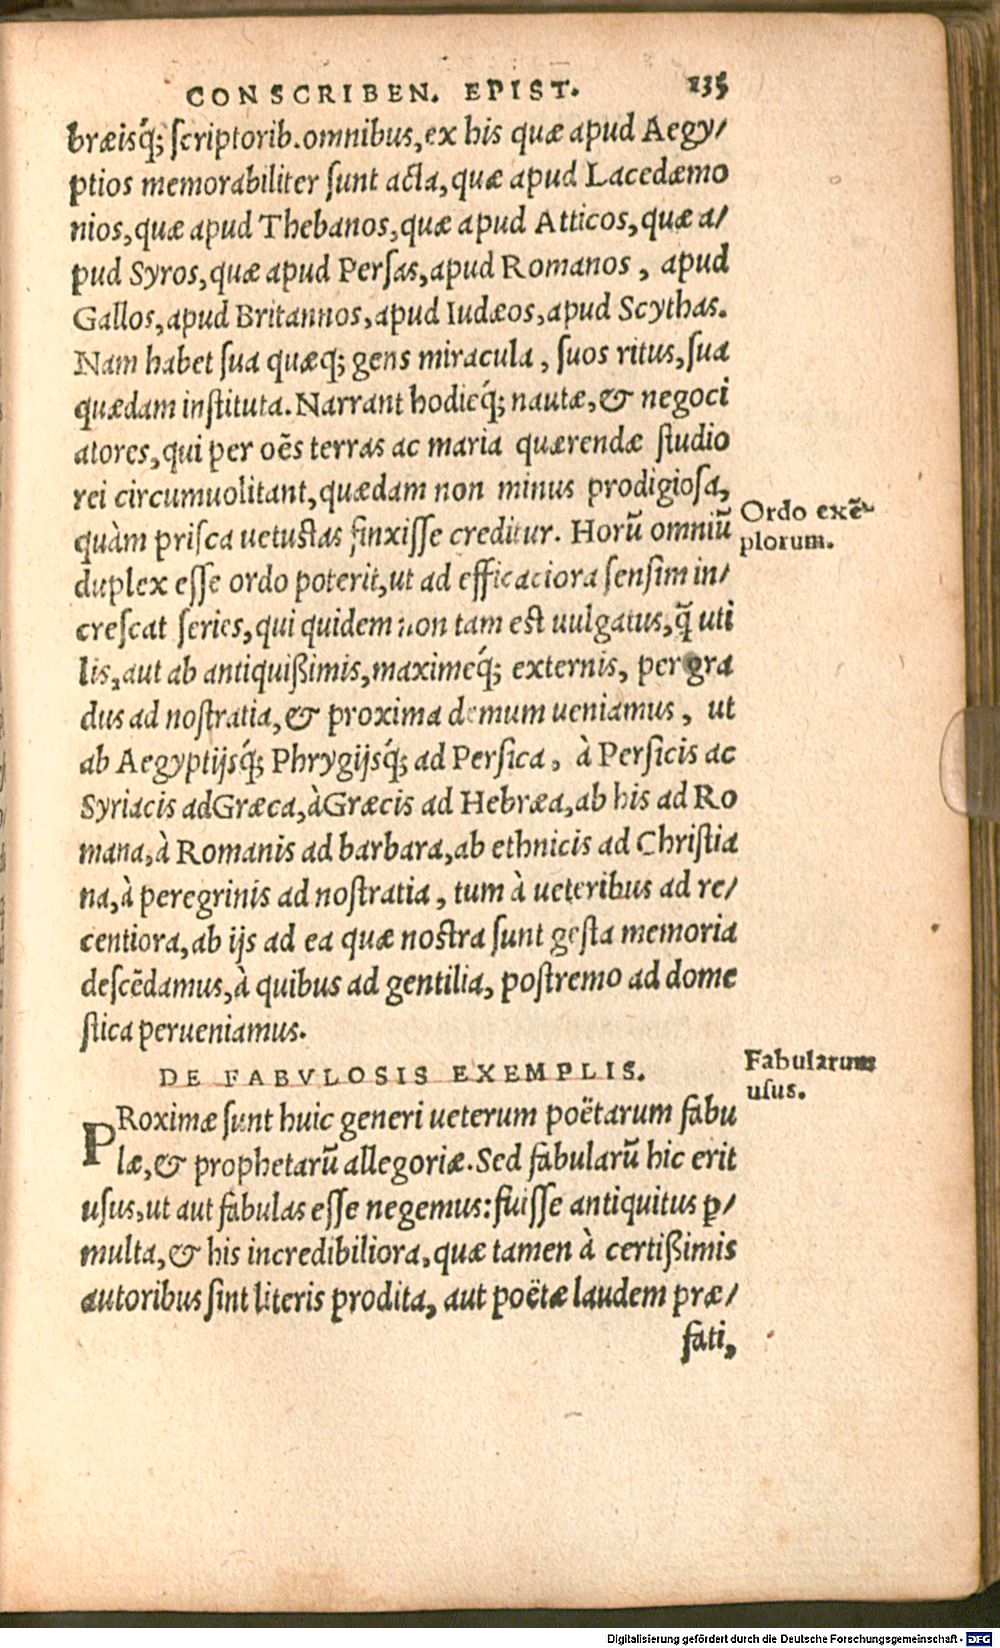 CONSCRIBEN. EPIST. 135
bræisq́; ſcriptorib. omnibus, ex his quæ apud Aegy/
ptios memorabiliter ſunt acta, quæ apud Lacedæmo
nios, quæ apud Thebanos, quæ apud Atticos, quæ a/
pud Syros, quæ apud Perſas, apud Romanos, apud
Gallos, apud Britannos, apud Iudæos, apud Scythas.
Nam habet ſua quæq; gens miracula, ſuos ritus, ſua
quædam inſtituta. Narrant hodieq́; nautæ, & negoci
atores, qui per oẽs terras ac maria quærendæ ſtudio
rei circumuolitant, quædam non minus prodigioſa,
quàm priſca uetustas finxiſſe creditur. Horũ omniũ
Ordo exẽ-
plorum.
duplex eſſe ordo poterit, ut ad efficaciora ſenſim in/
creſcat ſeries, qui quidem non tam est uulgatus, q̃ uti
lis, aut ab antiquißimis, maximeq́; externis, per gra
dus ad noſtratia, & proxima demum ueniamus, ut
ab Aegyptijsq́; Phrygijsq́; ad Perſica, à Perſicis ac
Syriacis ad Græca, à Græcis ad Hebræa, ab his ad Ro
mana, à Romanis ad barbara, ab ethnicis ad Chriſtia
na, à peregrinis ad noſtratia, tum à ueteribus ad re/
centiora, ab ijs ad ea quæ nostra ſunt geſta memoria
deſcẽdamus, à quibus ad gentilia, poſtremo ad dome
ſtica perueniamus.
DE FABVLOSIS EXEMPLIS.
Fabularum
uſus.
PRoximæ ſunt huic generi ueterum poëtarum fabu
læ, & prophetarũ allegoriæ. Sed fabularũ hic erit
uſus, ut aut fabulas eſſe negemus: fuiſſe antiquitus ꝑ/
multa, & his incredibiliora, quæ tamen à certißimis
autoribus ſint literis prodita, aut poëtæ laudem præ/
fati,
Digitalisierung gefördert durch die Deutsche Forschungsgemeinschaft - DFG